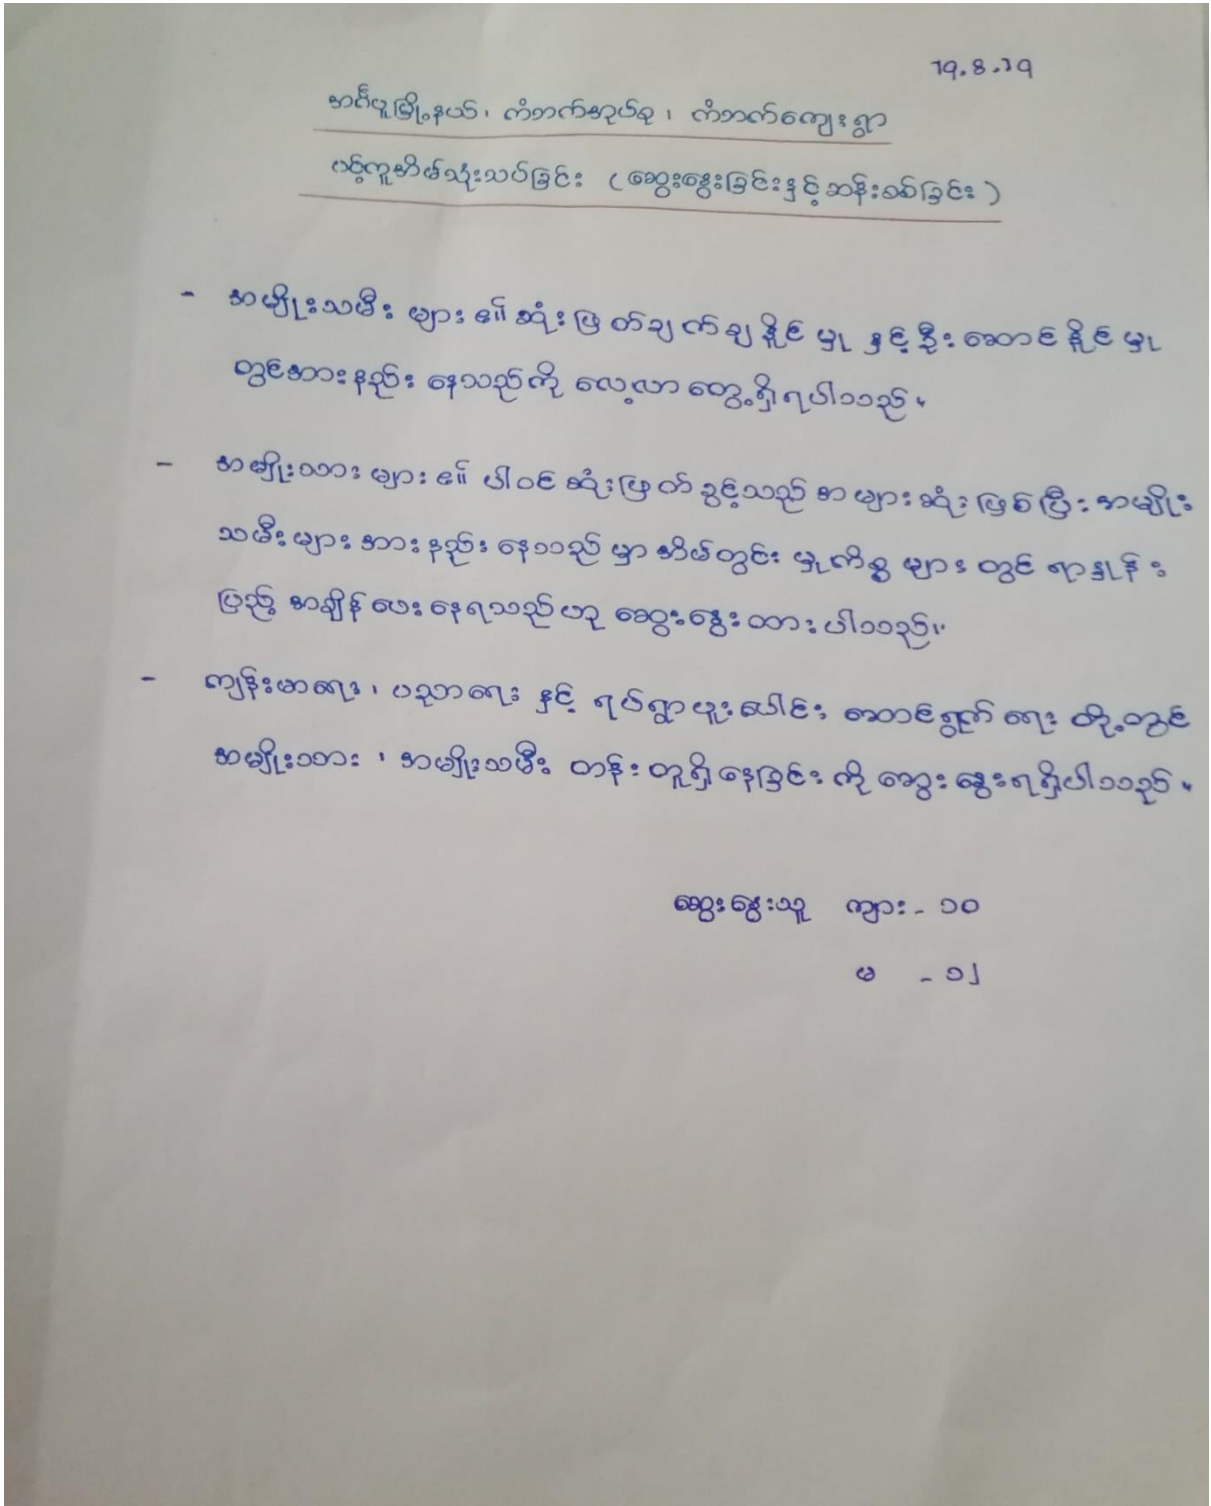 19.8.19
အင်္ဂပူမြို့နယ်၊ ကံဘက်အုပ်စု၊ ကံဘက်ကျေးရွာ
ပင့်ကူအိမ်သုံးသပ်ခြင်း (ဆွေးနွေးခြင်းနှင့်ဆန်းစစ်ခြင်း)
- အမျိုးသမီး များ ၏ ဆုံးဖြတ်ချက်ချနိုင်မှု နှင့်ဦးဆောင်နိုင်မှု
တွင်အားနည်း နေသည်ကို လေ့လာ တွေ့ရှိရပါသည်။
- အမျိုးသား များ ၏ ပါဝင် ဆုံးဖြတ်ခွင့်သည် အများဆုံး ဖြစ်ပြီး အမျိုး
သမီးများ အားနည်း နေသည် မှာ အိမ်တွင်း မှုကိစ္စ များ တွင် ရာနှုန်း
ပြည့် အချိန်ပေးနေရသည်ဟု ဆွေးနွေးထားပါသည်။
- ကျန်းမာရေး၊ ပညာရေး နှင့် ရပ်ရွာပူးပေါင်း ဆောင်ရွက်ရေး တို့တွင်
အမျိုးသား၊ အမျိုးသမီး တန်းတူရှိနေခြင်း ကို ဆွေးနွေးရရှိပါသည်။
ဆွေးနွေးသူ ကျား - ၁၀
မ - ၁၂